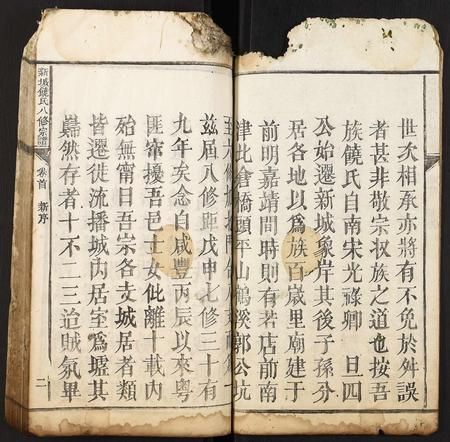 世次相承亦將有不免於舛誤
者甚非敬宗收族之道也按吾
族饒氏自南宋光祿卿 旦四
公始遷新城象岸其後子孫分
居各地以爲族百歲里廟建于
前明嘉靖間時則有若店前南
津北倉橋頭平山鶴溪郭公坑
茲屆八修距戊申七修三十有
九年矣念自咸豐丙辰以來粤
匪竄擾吾邑士女仳離十載內
殆無甯日吾宗各支城居者類
皆遷徙流播城內居室爲墟其
巋然存者十不二三迨賊氛畢
新城饒氏八修宗譜 卷首 新序 二